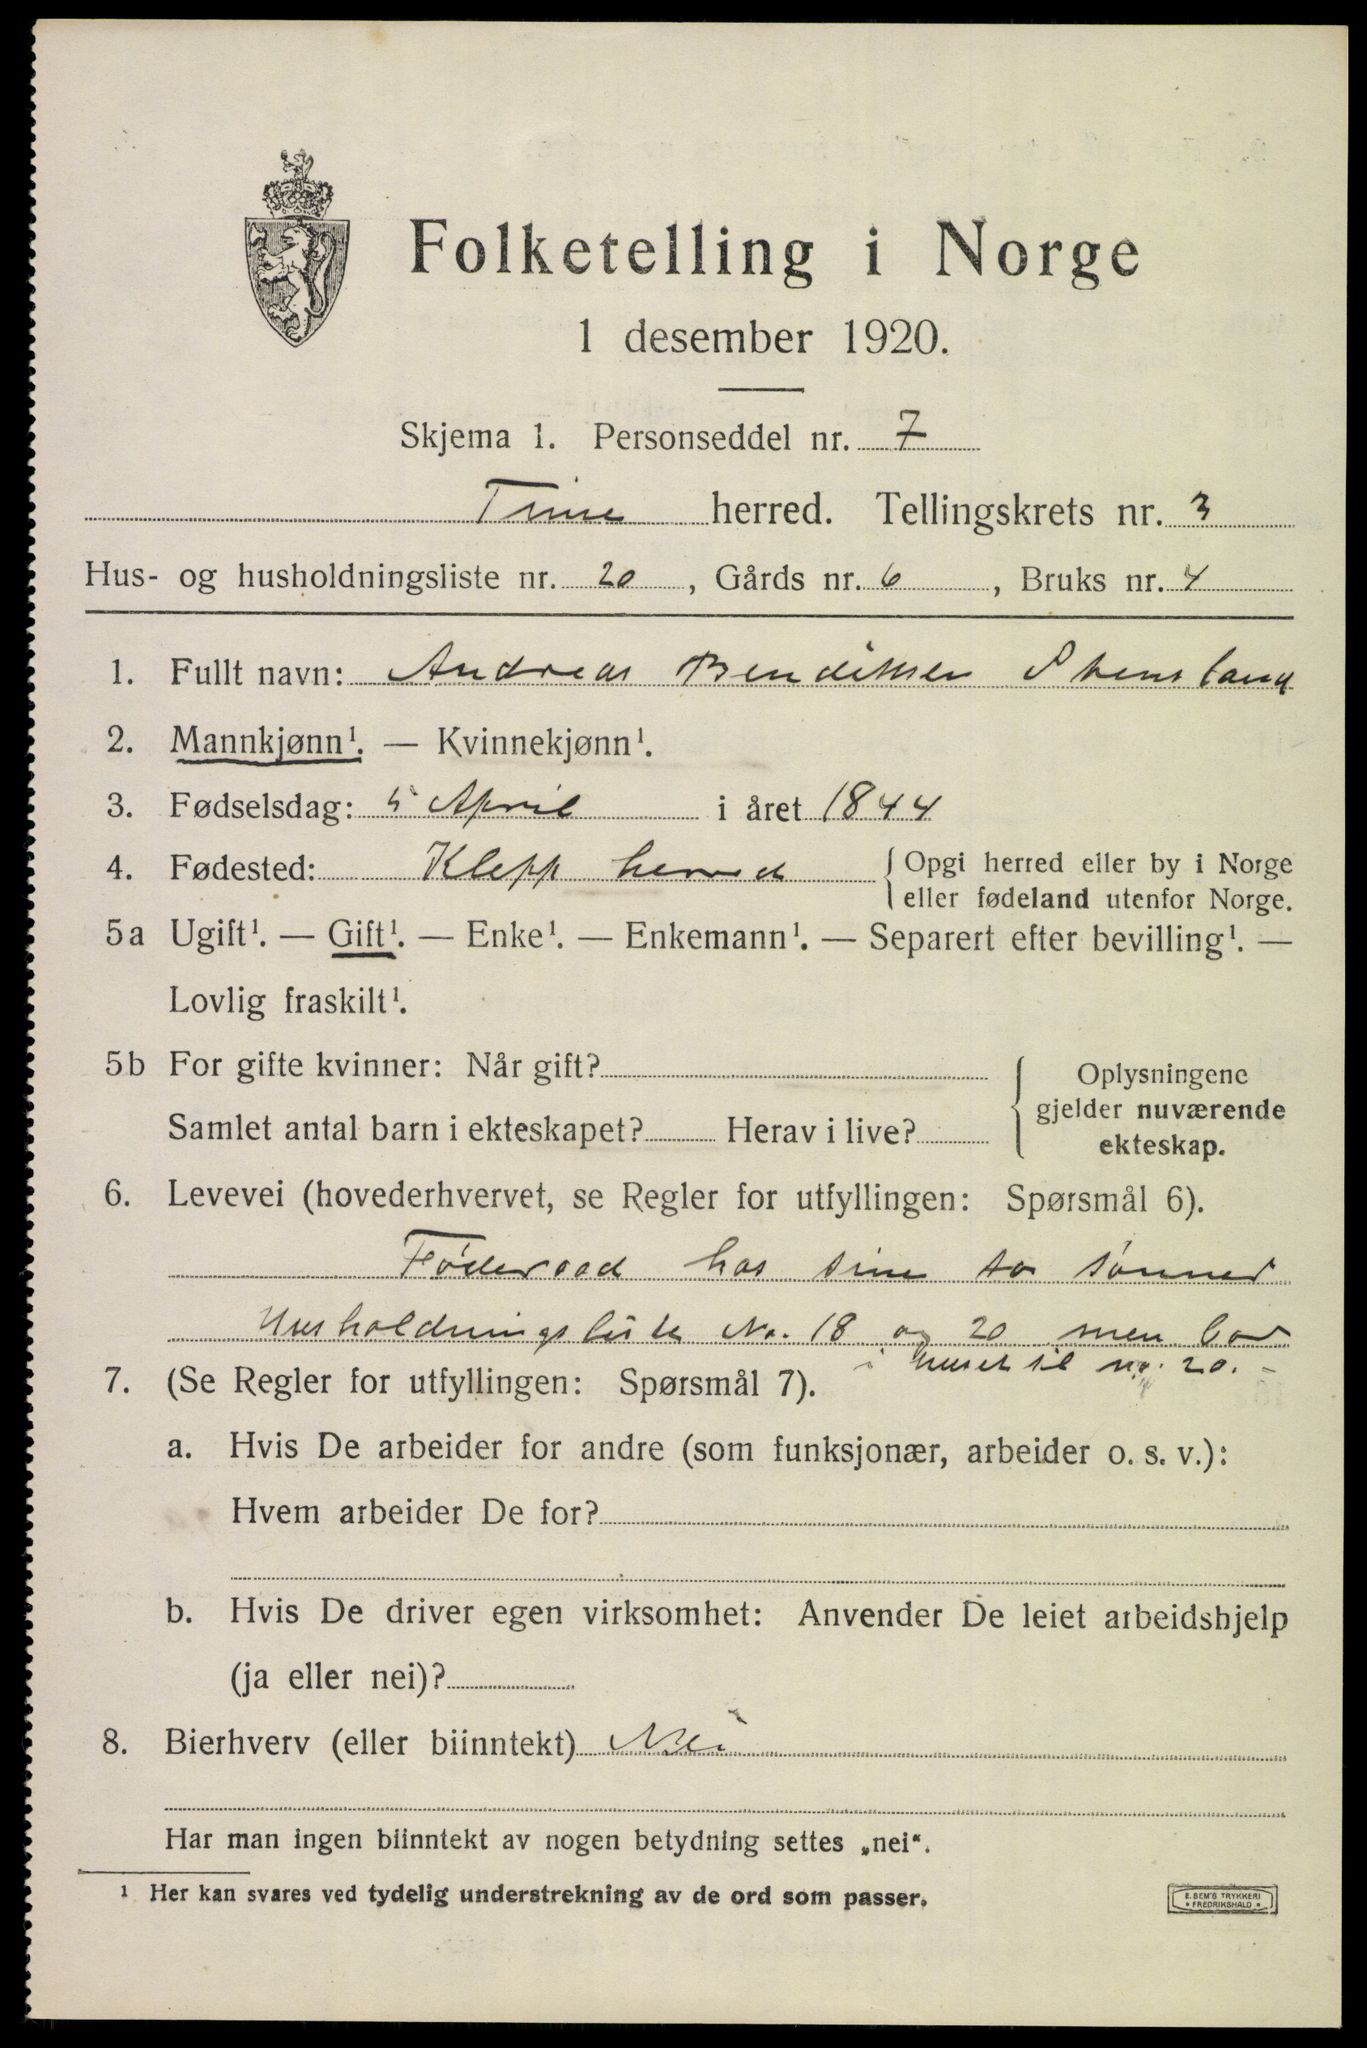 Folketelling i Norge
1 desember 1920.
Skjema 1. Personseddel nr. 7
Time herred. Tellingskrets nr. 3
Hus- og husholdningsliste nr. 20, Gårds nr. 6, Bruks nr. 4
1. Fullt navn: Andreas Bendiksen
2. Mannkjønn¹. — Kvinnekjønn¹.
3. Fødselsdag: 5 April i året 1844
4. Fødested: Klepp herred { Opgi herred eller by i Norge
eller fødeland utenfor Norge.
5a Ugift¹. — Gift¹. — Enke¹. — Enkemann¹. — Separert efter bevilling¹. —
Lovlig fraskilt¹.
5b For gifte kvinner: Når gift?
Samlet antal barn i ekteskapet? Herav i live?
Oplysningene
gjelder nuværende
ekteskap.
6. Levevei (hovederhvervet, se Regler for utfyllingen: Spørsmål 6).
Føderaad hos sine to sønner
Husholdningsliste No. 18 og 20 men bor
i huset til no. 20. -
7. (Se Regler for utfyllingen: Spørsmål 7).
a. Hvis De arbeider for andre (som funksjonær, arbeider o. s. v.):
Hvem arbeider De for?
b. Hvis De driver egen virksomhet: Anvender De leiet arbeidshjelp
(ja eller nei)?
8. Bierhverv (eller biinntekt) Nei
Har man ingen biinntekt av nogen betydning settes „nei“.
¹ Her kan svares ved tydelig understrekning av de ord som passer.
E. SEM'S TRYKKERI
* FREDRIKSHALD *